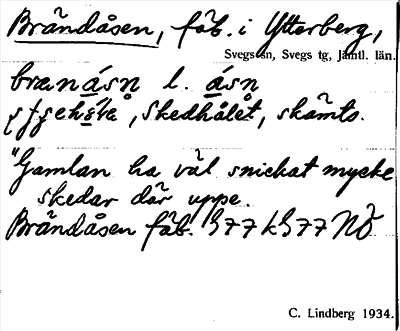 Brändåsen, fäb. i Ytterberg,
Svegs sn, Svegs tg, Jämtl. län.
brænásn l. åsn
Skedhålet, skämts.
"Gamlan ha väl snickat mycke
skedar där uppe.
Brändåsen fäb. 977 k 977 NÖ
C. Lindberg 1934.